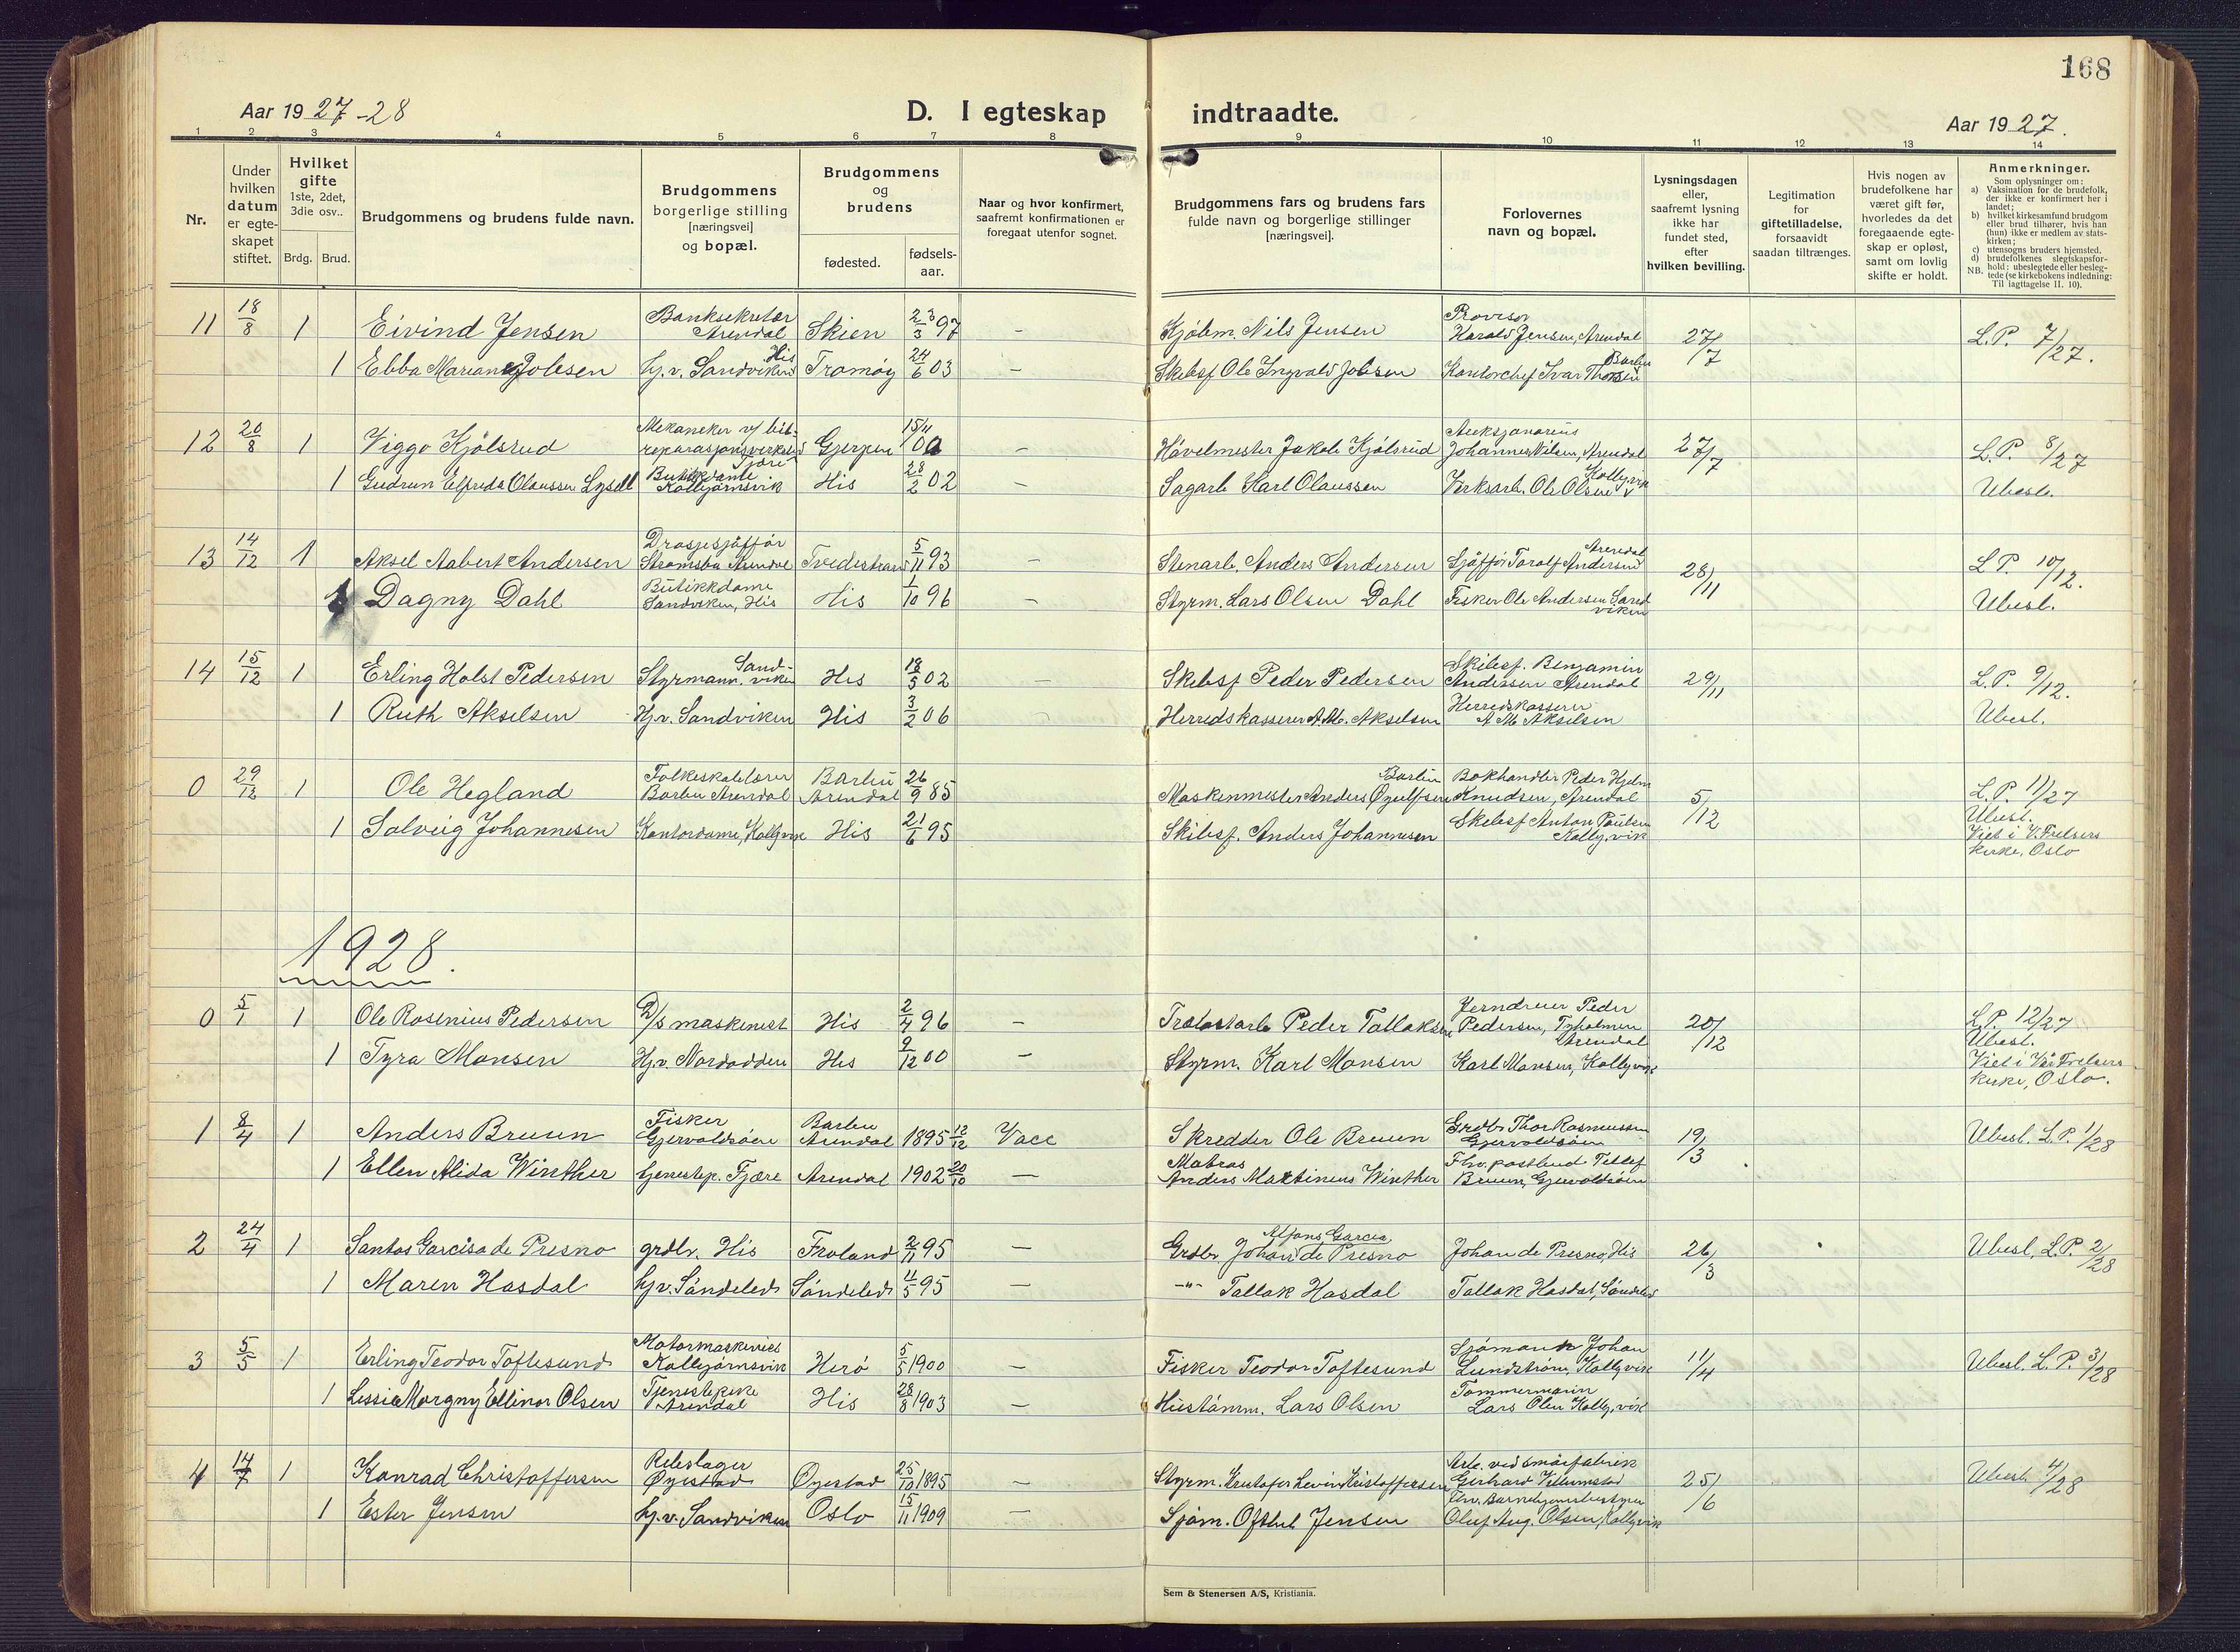 168
Aar 1927-28
D. I egteskap indtraadte.
Aar 1927.
1 2 3 4 5 6 7 8 9 10 11 12 13 14
Nr.
Under hvilken datum er egte-skapet stiftet.
Hvilket gifte 1ste, 2det, 3die osv..
Brdg. Brud.
Brudgommens og brudens fulde navn.
Brudgommens borgerlige stilling [næringsvei] og bopæl.
Brudgommens og brudens
fødested.
fødsels-aar.
Naar og hvor konfirmert, saafremt konfirmationen er foregaat utenfor sognet.
Brudgommens fars og brudens fars fulde navn og borgerlige stillinger [næringsvei].
Forlovernes navn og bopæl.
Lysningsdagen eller, saafremt lysning ikke har fundet sted, efter hvilken bevilling.
Legitimation for giftetilladelse, forsaavidt saadan tiltrænges.
Hvis nogen av brudefolkene har været gift før, hvorledes da det foregaaende egte-skap er opløst, samt om lovlig skifte er holdt.
Anmerkninger.
Som oplysninger om:
a) Vaksination for de brudefolk, der ikke er konfirmert her i landet;
b) hvilket kirkesamfund brudgom eller brud tilhører, hvis han (hun) ikke er medlem av stats-kirken;
c) utensogns bruders hjemsted.
d) brudefolkenes slegtskapsfor-hold: ubeslegtede eller besleg-tede (se kirkebokens indledning:
NB. Til iagttagelse II. 10).
11 18/8 1 Eivind Jensen Banksekretær Arendal Skien 23/3 97 — Kjøbm. Nils Jensen Provisor Harald Jensen, Arendal 27/7 L.P. 7/27.
1 Ebba Mariane Jobsen Hj.v. Sandviken His Tromøy 24/6 03 — Skibsf Ole Ingvald Jobsen Kontorchef Ivar Thorsen Barbu
12 20/8 1 Viggo Kjølsrud Mekaniker v/ bil-reparasjonsverksted Fjære Gjerpen 15/11 00 — Høvelmester Jakob Kjølsrud Auksjonarius Johannes Nilsen, Arendal 27/7 L.P. 8/27
1 Gudrun Elfrida Olaussen Lysell Butikkdame Kolbjørnsvik His 28/2 02 — Sagarb. Karl Olaussen Verksarb. Ole Olsen Kolbj.vik Ubesl.
13 14/12 1 Aksel Aabert Andersen Drosjesjåffør Strømsbu Arendal Tvedestrand 5/11 93 — Stenarb. Anders Andersen Sjåffør Toralf Andersen Arendal 28/11 L.P. 10/12.
1 Dagny Dahl Butikkdame Sandviken, His His 1/10 96 — Styrm. Lars Olsen Dahl Fisker Ole Andersen Sandviken Ubesl.
14 15/12 1 Erling Holst Pedersen Styrmann. Sandviken His 18/5 02 — Skibsf Peder Pedersen Skibsf. Benjamin Andersen Arendal 29/11 L.P. 9/12.
1 Ruth Akselsen Hj.v. Sandviken His 3/2 06 — Herredskasserer A.M. Akselsen Herredskasserer A.M. Akselsen Ubesl.
0 29/12 1 Ole Hegland Folkeskolelærer Barbu Arendal Barbu Arendal 26/9 85 Maskinmester Anders Øyulfsen Barbu Bokhandler Peder Hjelm Knudsen, Arendal 5/12 L.P. 11/27 Ubesl.
1 Solveig Johannesen Kontordame, Kolbj.vik His 21/6 95 Skibsf. Anders Johannesen Skibsf Anton Poulsen Kolbj.vik Viet i V. Frelsers kirke, Oslo
1928.
0 5/1 1 Ole Rosenius Pedersen D/s maskinist His 2/4 96 — Peder Tallaksen Jerndreier Peder Pedersen, Tyholmen Arendal 20/12 L.P. 12/27 Ubesl.
1 Tyra Monsen Hj.v. Nordodden His 9/12 00 — Styrm. Karl Monsen Karl Monsen, Kolbj.vik Viet i Vår Frelsers kirke, Oslo.
1 8/4 1 Anders Bruun Fisker Gjervoldsøen Barbu Arendal 1895 12/12 Vacc Skredder Ole Bruun Grdbr. Thor Rasmussen Gjervoldsøen 19/3 Ubesl. L.P. 1/28
1 Ellen Alida Winther tjenestep. Fjære Arendal 1902 20/10 — Matros Anders Martinius Winther Fhv. postbud Tellef Bruun, Gjervoldsøen
2 24/4 1 Santos Garcisa de Presno grdbr. His Froland 2/11 95 — Grdbr. Johan Alfons Garcia de Presno Johan de Presno, His 26/3 Ubesl. L.P. 2/28
1 Maren Hasdal hj.v. Søndeled Søndeled 11/5 95 — -"- Tallak Hasdal Tallak Hasdal, Søndeled
3 5/5 1 Erling Teodor Toftesund Motormaskinist Kolbjørnsvik Herø 5/5 1900 — Fisker Teodor Toftesund Sjømann Johan Lundstrøm, Kolbj.vik 11/4 Ubesl. L.P. 3/28
1 Lessie Morgny Ellinor Olsen Tjenestepike Arendal His 28/8 1903 — Hustømm. Lars Olsen Tømmermann Lars Olsen Kolbj.vik
4 14/7 1 Konrad Christoffersen Rebslager Øyestad Øyestad 25/10 1895 — Styrm. Kristofer Levin Kristoffersen Arb. ved smørfabrik Gerhard Villumstad 25/6 Ubesl. 4/28
1 Ester Jensen hj.v. Sandviken Oslo 15/11 1909 — Sjøm. Jensen Fhv. Oluf Aug. Olsen, Kolbj.vik
Sem & Stenersen A/S, Kristiania.